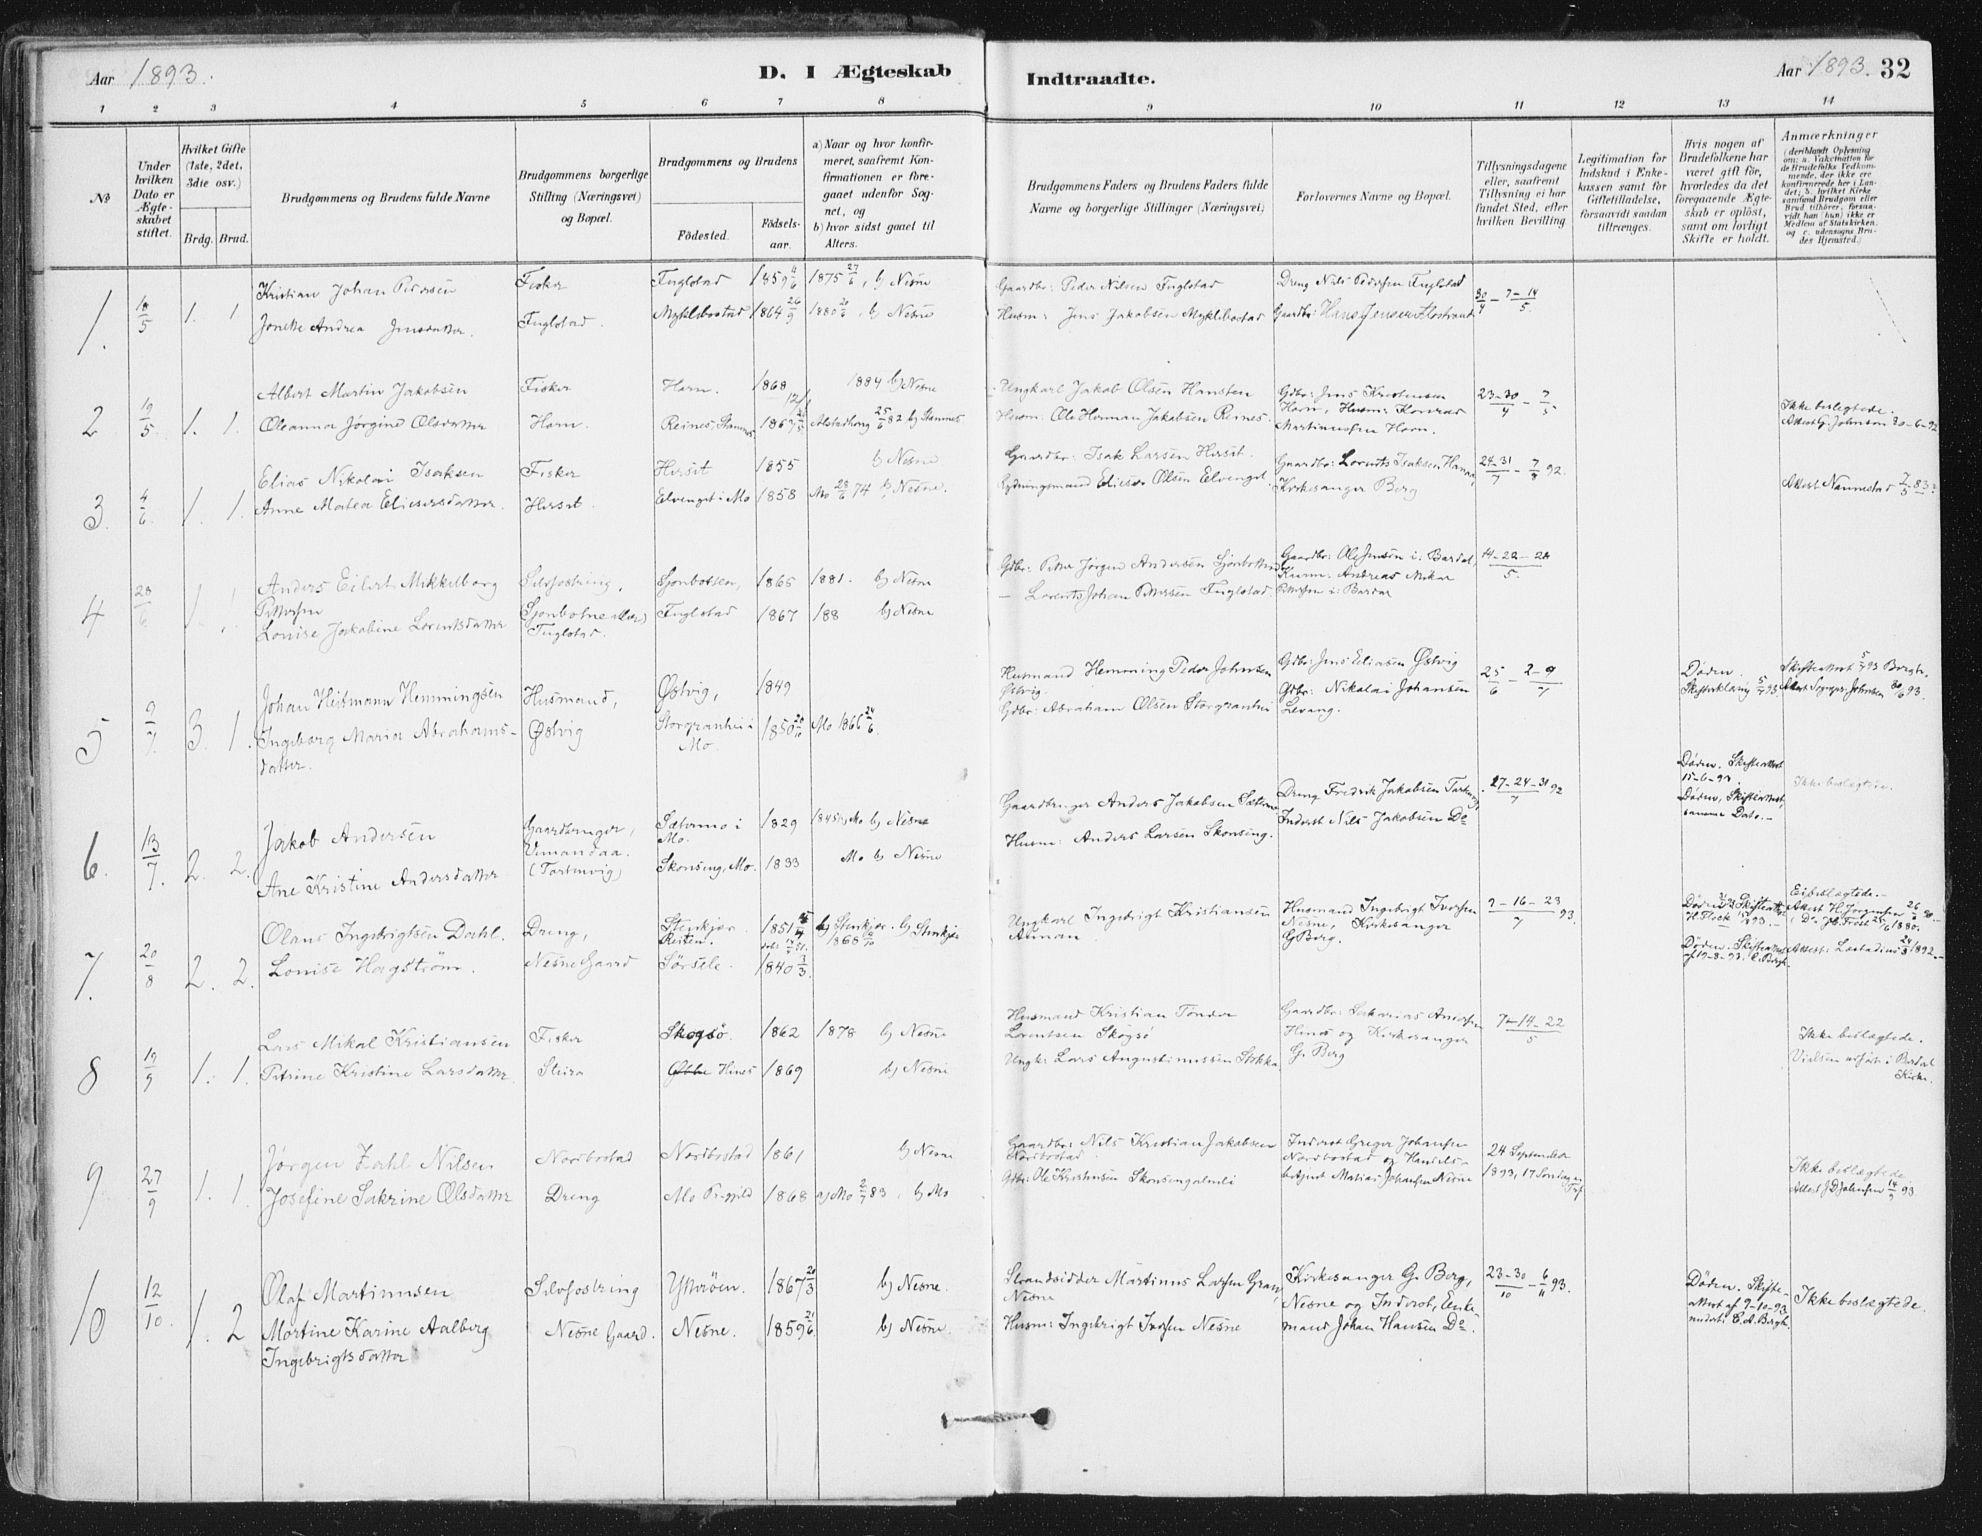 Aar 1893.
D. I Ægteskab
Indtraadte.
Aar 1893. 32
1 2 3 4 5 6 7 8 9 10 11 12 13 14
No
Under hvilken Dato er Ægteskabet stiftet.
Hvilket Gifte (1ste, 2det, 3die osv.)
Brdg. Brud.
Brudgommens og Brudens fulde Navne
Brudgommens borgerlige Stilling (Næringsvei) og Bopæl.
Brudgommens og Brudens
Fødested.
Fødselsaar.
a) Naar og hvor konfirmeret, saafremt Konfirmationen er foregaaet udenfor Sognet, og
b) hvor sidst gaaet til Alters.
Brudgommens Faders og Brudens Faders fulde Navne og borgerlige Stillinger (Næringsvei)
Forlovernes Navne og Bopæl.
Tillysningsdagene eller, saafremt Tillysning ei har fundet Sted, efter hvilken Bevilling
Legitimation for Indskud i Enkekassen samt for Giftetilladelse, forsaavidt saadan tiltrænges.
Hvis nogen af Brudefolkene har været gift før, hvorledes da det foregaaende Ægteskab er opløst, samt om lovligt Skifte er holdt.
Anmærkninger
(deriblandt Oplysning om: a. Vakcination for de Brudefolks Vedkommende, der ikke ere konfirmerede her i Landet; b. hvilket Kirkesamfund Brudgom eller Brud tilhører, forsaavidt han (hun) ikke er Medlem af Statskirken, og c. udensogns Brudes Hjemsted.)
1. 18/5 1. 1
Kristian Johan Pedersen Fisker Fuglstad 1859 4/6 1875 27/6, b) Nesne
Gaardbr: Peder Nilsen Fuglstad Dreng Nils Pedersen Fuglstad 30/4 – 7–14/5
Jonette Andrea Jensdatter. Fuglstad. Myklebostad 1864 26/9 1880 20/6, b) Nesne
Husm: Jens Jakobsen Myklebostad Gaardbr: Hans Jensen
2 19/5 1. 1.
Albert Martin Jakobsen Fisker Horn. 1868 1884 b) Nesne
Ungkarl Jakob Olsen Hansten Gdbr: Jens Kristensen Horn, Husm: Konrad Martinussen Horn. 23–30/4 – 7/5
Oleanna Jørgine Olsdatter Horn. Reines, Stamnes 1867 Alstadhoug 25/6 82 b) Stamnes
Husm: Ole Herman Jakobsen Reines. Ikke beslegtede. Attest G. Johnson 30-6-92
3. 4/6 1. 1.
Elias Nikolai Isaksen Fisker Hersit 1855 b) Nesne
Gaardbr: Isak Larsen Hersit. Gaardbr: Lorents Isaksen 24–31/7 – 7/8 92.
Anne Matea Eliesersdatter. Hersit. Elvenget i Mo 1858 Mo 28/6 74 b) Nesne.
Rydningsmand Elieser Olsen Elvenget. Kirkesanger Berg Attest Nannestad 2/5 83.
4 28/6 1. 1
Anders Eilert Mikkelborg Pettersen Selvfostring, Sjonbotten, 1865 1881. b) Nesne
Gdbr: Petter Jørgen Andersen Sjonbotten Gaardbr: Ole Jensen i: Bardal, 14–22–28/5.
Louise Jakobine Lorentsdatter Sjonbotne Fuglstad. Fuglstad 1867 188 b) Nesne
— Lorents Johan Pettersen Fuglstad Husm: Andreas Mikal Pettersen i: Bardal
5 9/7 3. 1.
Johan Heitmann Hemmingsen Husmand, Østvig, 1849
Husmand Hemming Peder Johnsen Østvig. Gdbr: Jens Eliasen Østvig 25/6 – 2–9/7 Døden. Skifteerklæring 5/7 93 Skifteattest 5/7 93 Bergh.
Ingeborg Maria Abrahamsdatter. Østvig Storgranhei i Mo. 1850 Mo 1866 24/6.
Gdbr: Abraham Olsen Storgranhei Gdbr: Nikolai Johansen Levang.
6. 13/7. 2. 2.
Jakob Andersen Gaardbruger, Sætermo i Mo. 1829 1845 i Mo b) Nesne
Gaardbruger Anders Jakobsen Sætermo Dreng Fredrik Jakobsen 17–24–31/7 92 Døden. Skifteattest 15-6-93. Ikke beslægtede.
Ane Kristine Andersdatter (Tortenvig) Skonseng, Mo. 1833 Mo b) Nesne
Husm: Anders Larsen Skonseng. Inderst Nils Jakobsen Do Døden, Skifteattest samme Dato.
7. 20/8 2. 2.
Olaus Ingebrigtsen Dahl. Dreng, Stenkjær 1851 b) Stenkjær. 1868
Ungkarl Ingebrigt Kristiansen Husmand Ingebrigt Iversen Nesne, Kirkesanger G. Berg. 9–16–23/7 93.
Louise Hagstrøm. Nesne Gaard Sørsele. 1840 3/3.
Døden. Skifteattest af 19-8-93. Bergh.
8 19/9 1. 1.
Lars Mikal Kristiansen Fisker Skogsø. 1862 1878 b) Nesne
Husmand Kristian Tønder Lorentsen Skogsø Gaardbr: Sakarias Andersen Hines og Kirkesanger G. Berg 7–14–22/5
Petrine Kristine Larsdatter. Steiro Hines 1869 b) Nesne
Ungk: Lars Augustinussen Stokka Ikke beslegtede. Vielsen udført i Bardal Kirke.
9 27/9 1. 1
Jørgen Zahl Nilsen Nordbostad Nordbostad 1861 b) Nesne
Gaardbr: Nils Kristian Jakobsen Nordbostad. Inderst Greger Johansen Nordbostad og Handelsbetjent Matias Johansen Nesne 24 September 1893, 17 Søndag e. Tref.
Josefine Sakrine Olsdatter Dreng Mo Prgjeld 1868 a) Mo 2/7 83, b) Mo
Gdbr: Ole Kristensen Ikke beslægtede. Attest 14/9 93
10 12/10. 1. 2
Olaf Martinusen Selvfostring Ytterøen. 1867 20/3 b) Nesne.
Strandsidder Martinus Larsen Gran, Nesne Kirkesanger G. Berg, Nesne og Inderst, Enkemand Johan Hansen Do. 23–30/10 – 6/11 93. Døden. Skifteattest af 9-10-93 Ikke beslægtede.
Martine Karine Aalberg Ingebrigtsdatter Nesne Gaard. Nesne. 1859 21/6 b) Nesne.
Husm: Ingebrigt Iversen Nesne